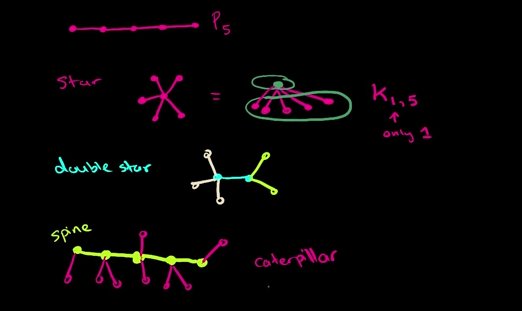 P5
Star
=
K1,5
only 1
double star
spine
caterpillar